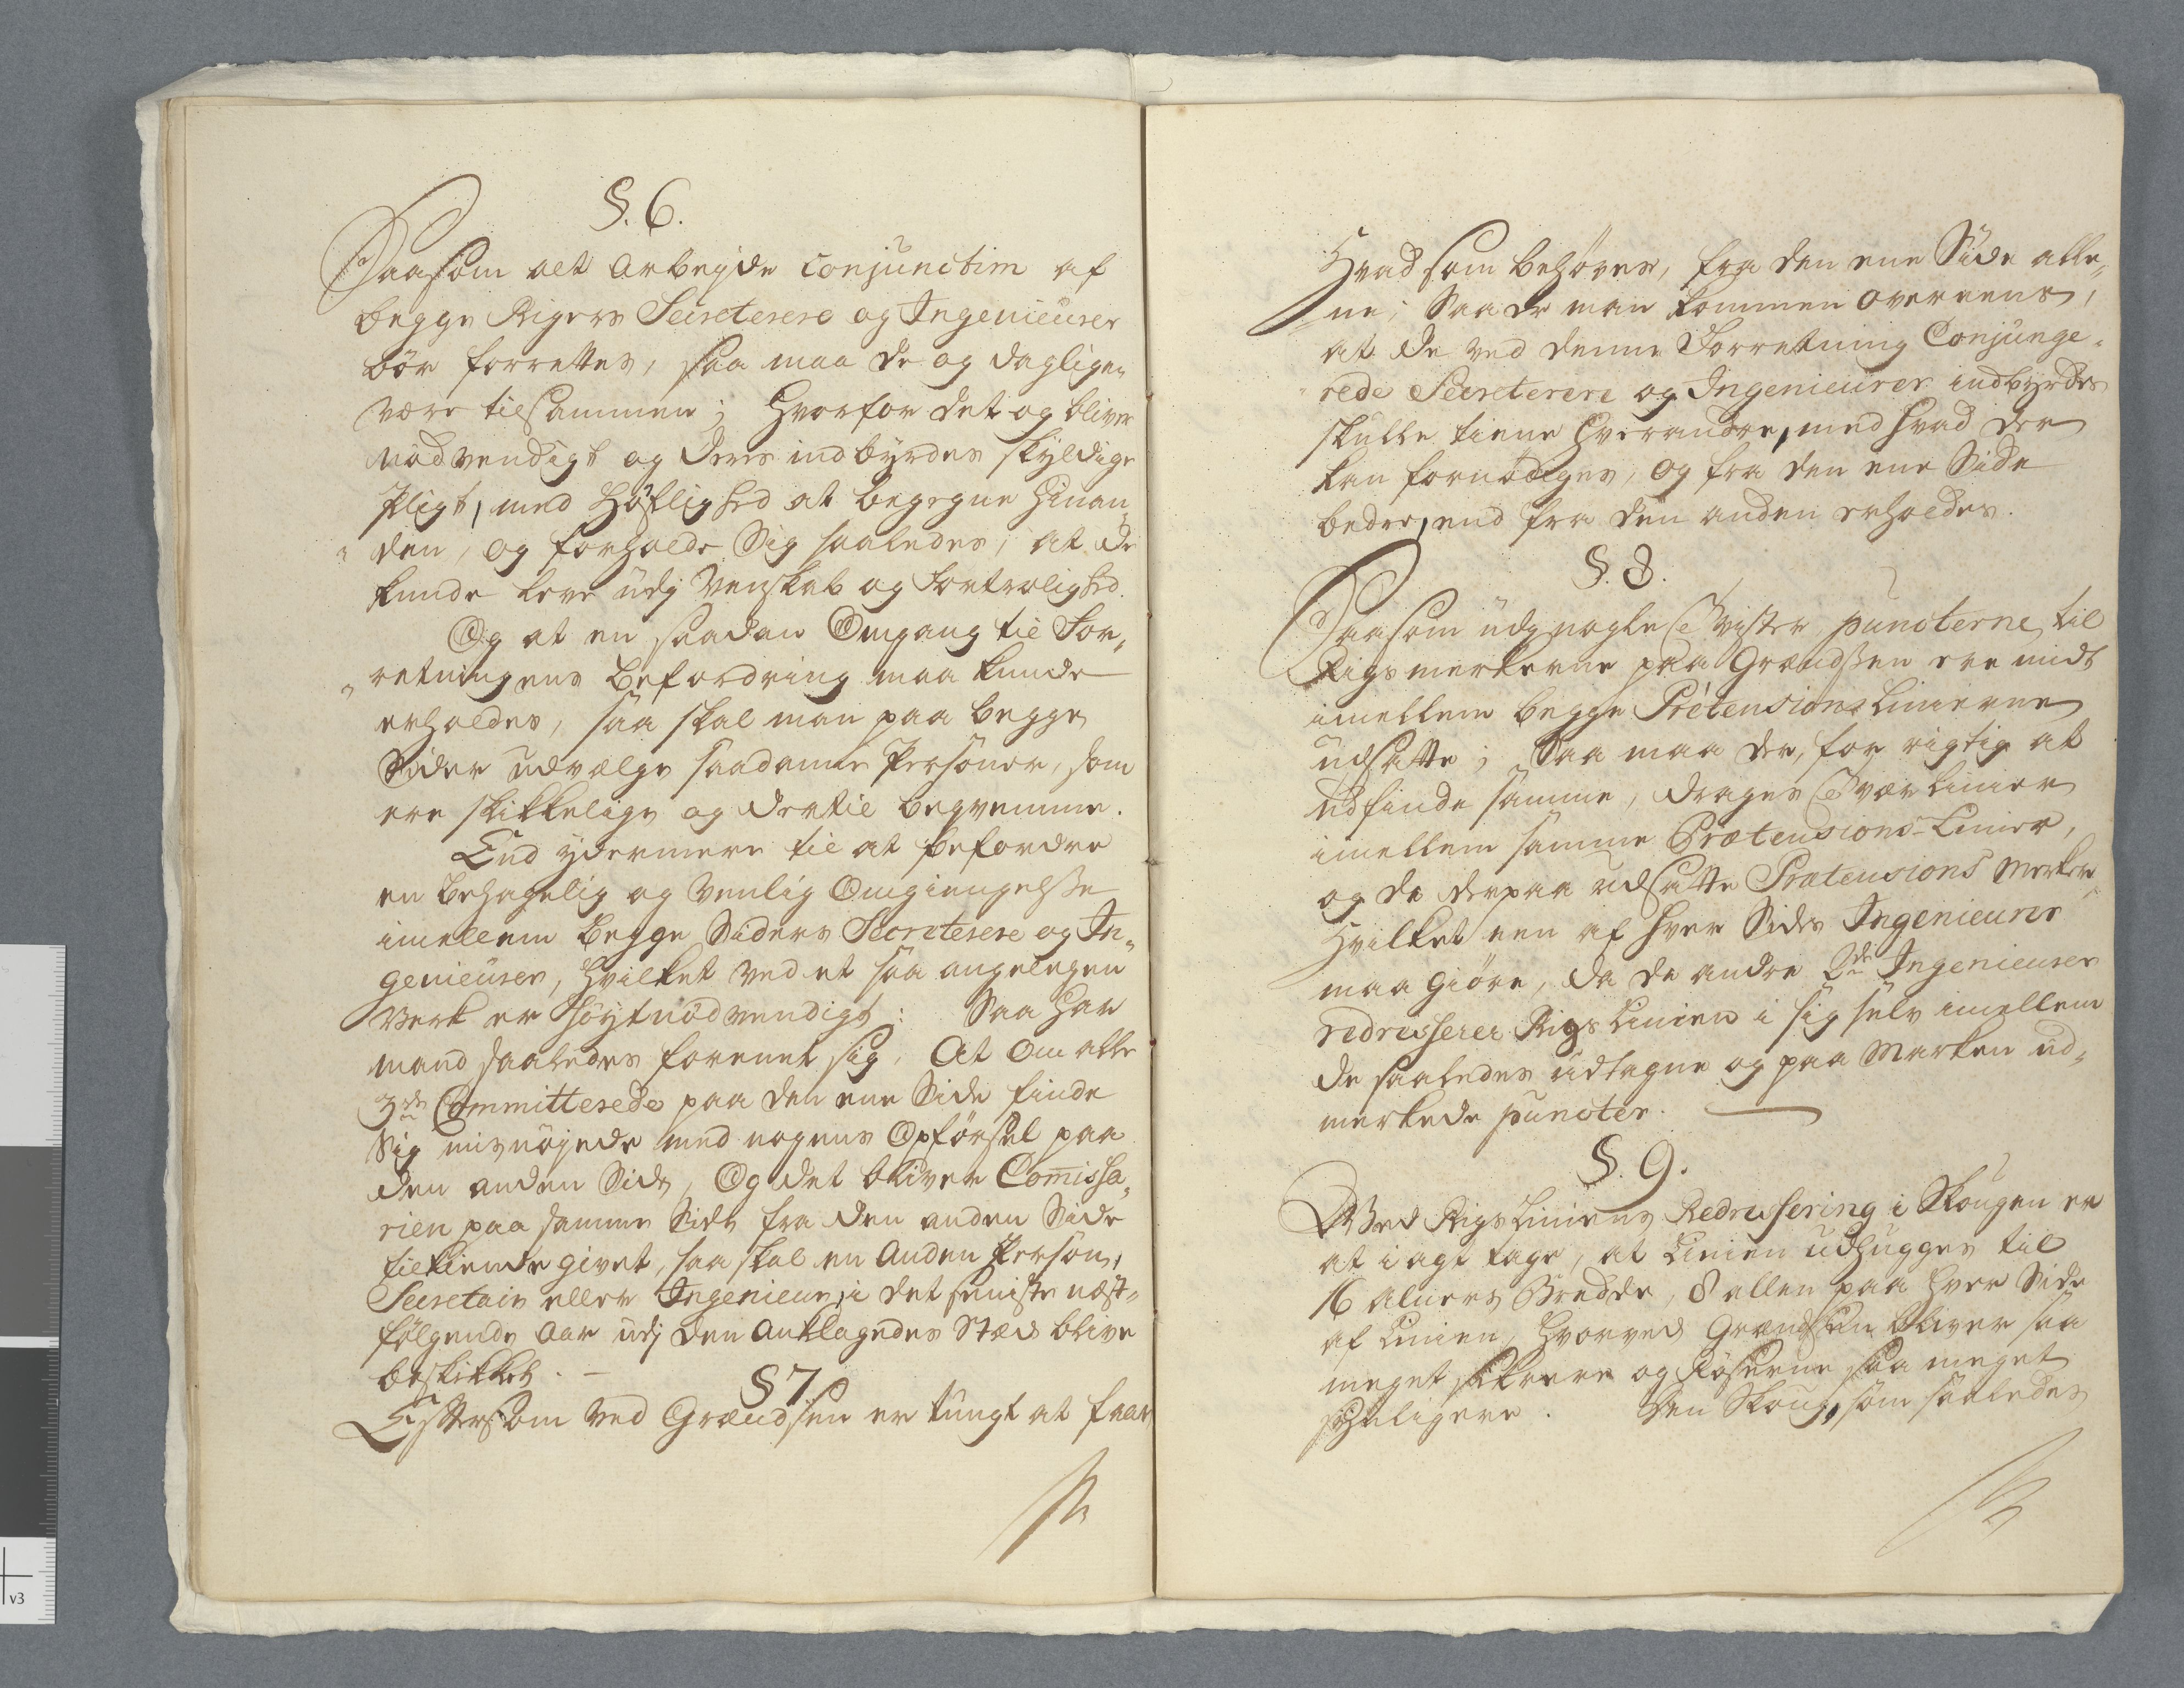 §. 6.
Saasom alt Arbejde conjunctim af
begge Rigers Secreterere og Ingenieurer
bör forrettes, saa maa de og dagligen
være tilsammen; Hvorfor det og bliver
nödvendigt og deres indbyrdes skyldige
Pligt, med Höflighed at begegne hinan„
„den, og forholde Sig saaledes, at de
kunde leve udj Venskab og Fortrolighed.
Og at en saadan Omgang til For„
„retningens Befordring maa kunde
erholdes, saa skal man paa begge
Sider udvælge saadanne Personer, som
ere skikkelige og dertil beqvemme.
End ydermere til at befordre
en behagelig og venlig Omgiengelsse
imellem begge Siders Secreterere og In„
genieurer, hvilket ved et saa angelegen
Verk er höystnödvendigt: Saa har
mand saaledes forenet sig, At om alle
3de Committerede paa den ene Side finde
Sig misnöjede med nogens Opförsel paa
den anden Side, Og det bliver Comissa„
rien paa samme Side fra den anden Side
tilkiende givet, saa skal en Anden Person,
Secretair eller Ingenieur, i det seniste næst„
fölgende Aar udj den Anklagedes Stæd blive
beskikket. –
§ 7.
Eftersom ved Grændsen er tungt at faae
Hvad som behöves, fra den ene Side alle„
ne; Saa er man kommen overeens,
at de ved denne Forretning Conjunge„
„rede Secreterere og Ingenieurer indbyrdes
skulle tiene hverandre, med hvad der
kan fornödiges, og fra den ene Side
bedre, end fra den anden erholdes.
§. 8.
Saasom udj nogle Tvister puncterne til
Rigsmerkerne paa Grændssen ere midt
imellem begge Prétensions Linierne
udsatte; Saa maa der, for rigtig at
udfinde samme, drages Tvær Linier
imellem samme Prætensions-Linier,
og de derpaa udsatte Prætensions Merker
Hvilket een af hver Sides Ingenieurer
maa giöre, da de andre 2de Ingenieurer
redresserer Rigs Linien i sig selv imellem
de saaledes udtagne og paa Marken ud„
merkede puncter.
§. 9.
Ved Rigs Liniens Redressering i Skougen er
at i agt tage, at Linien udhugges til
16 Alners Bredde, 8 allen paa hver Side
af Linien, hvorved Grændsen bliver saa
meget sikrere og Röserne saa meget
synligere. Den Skoug, som saaledes